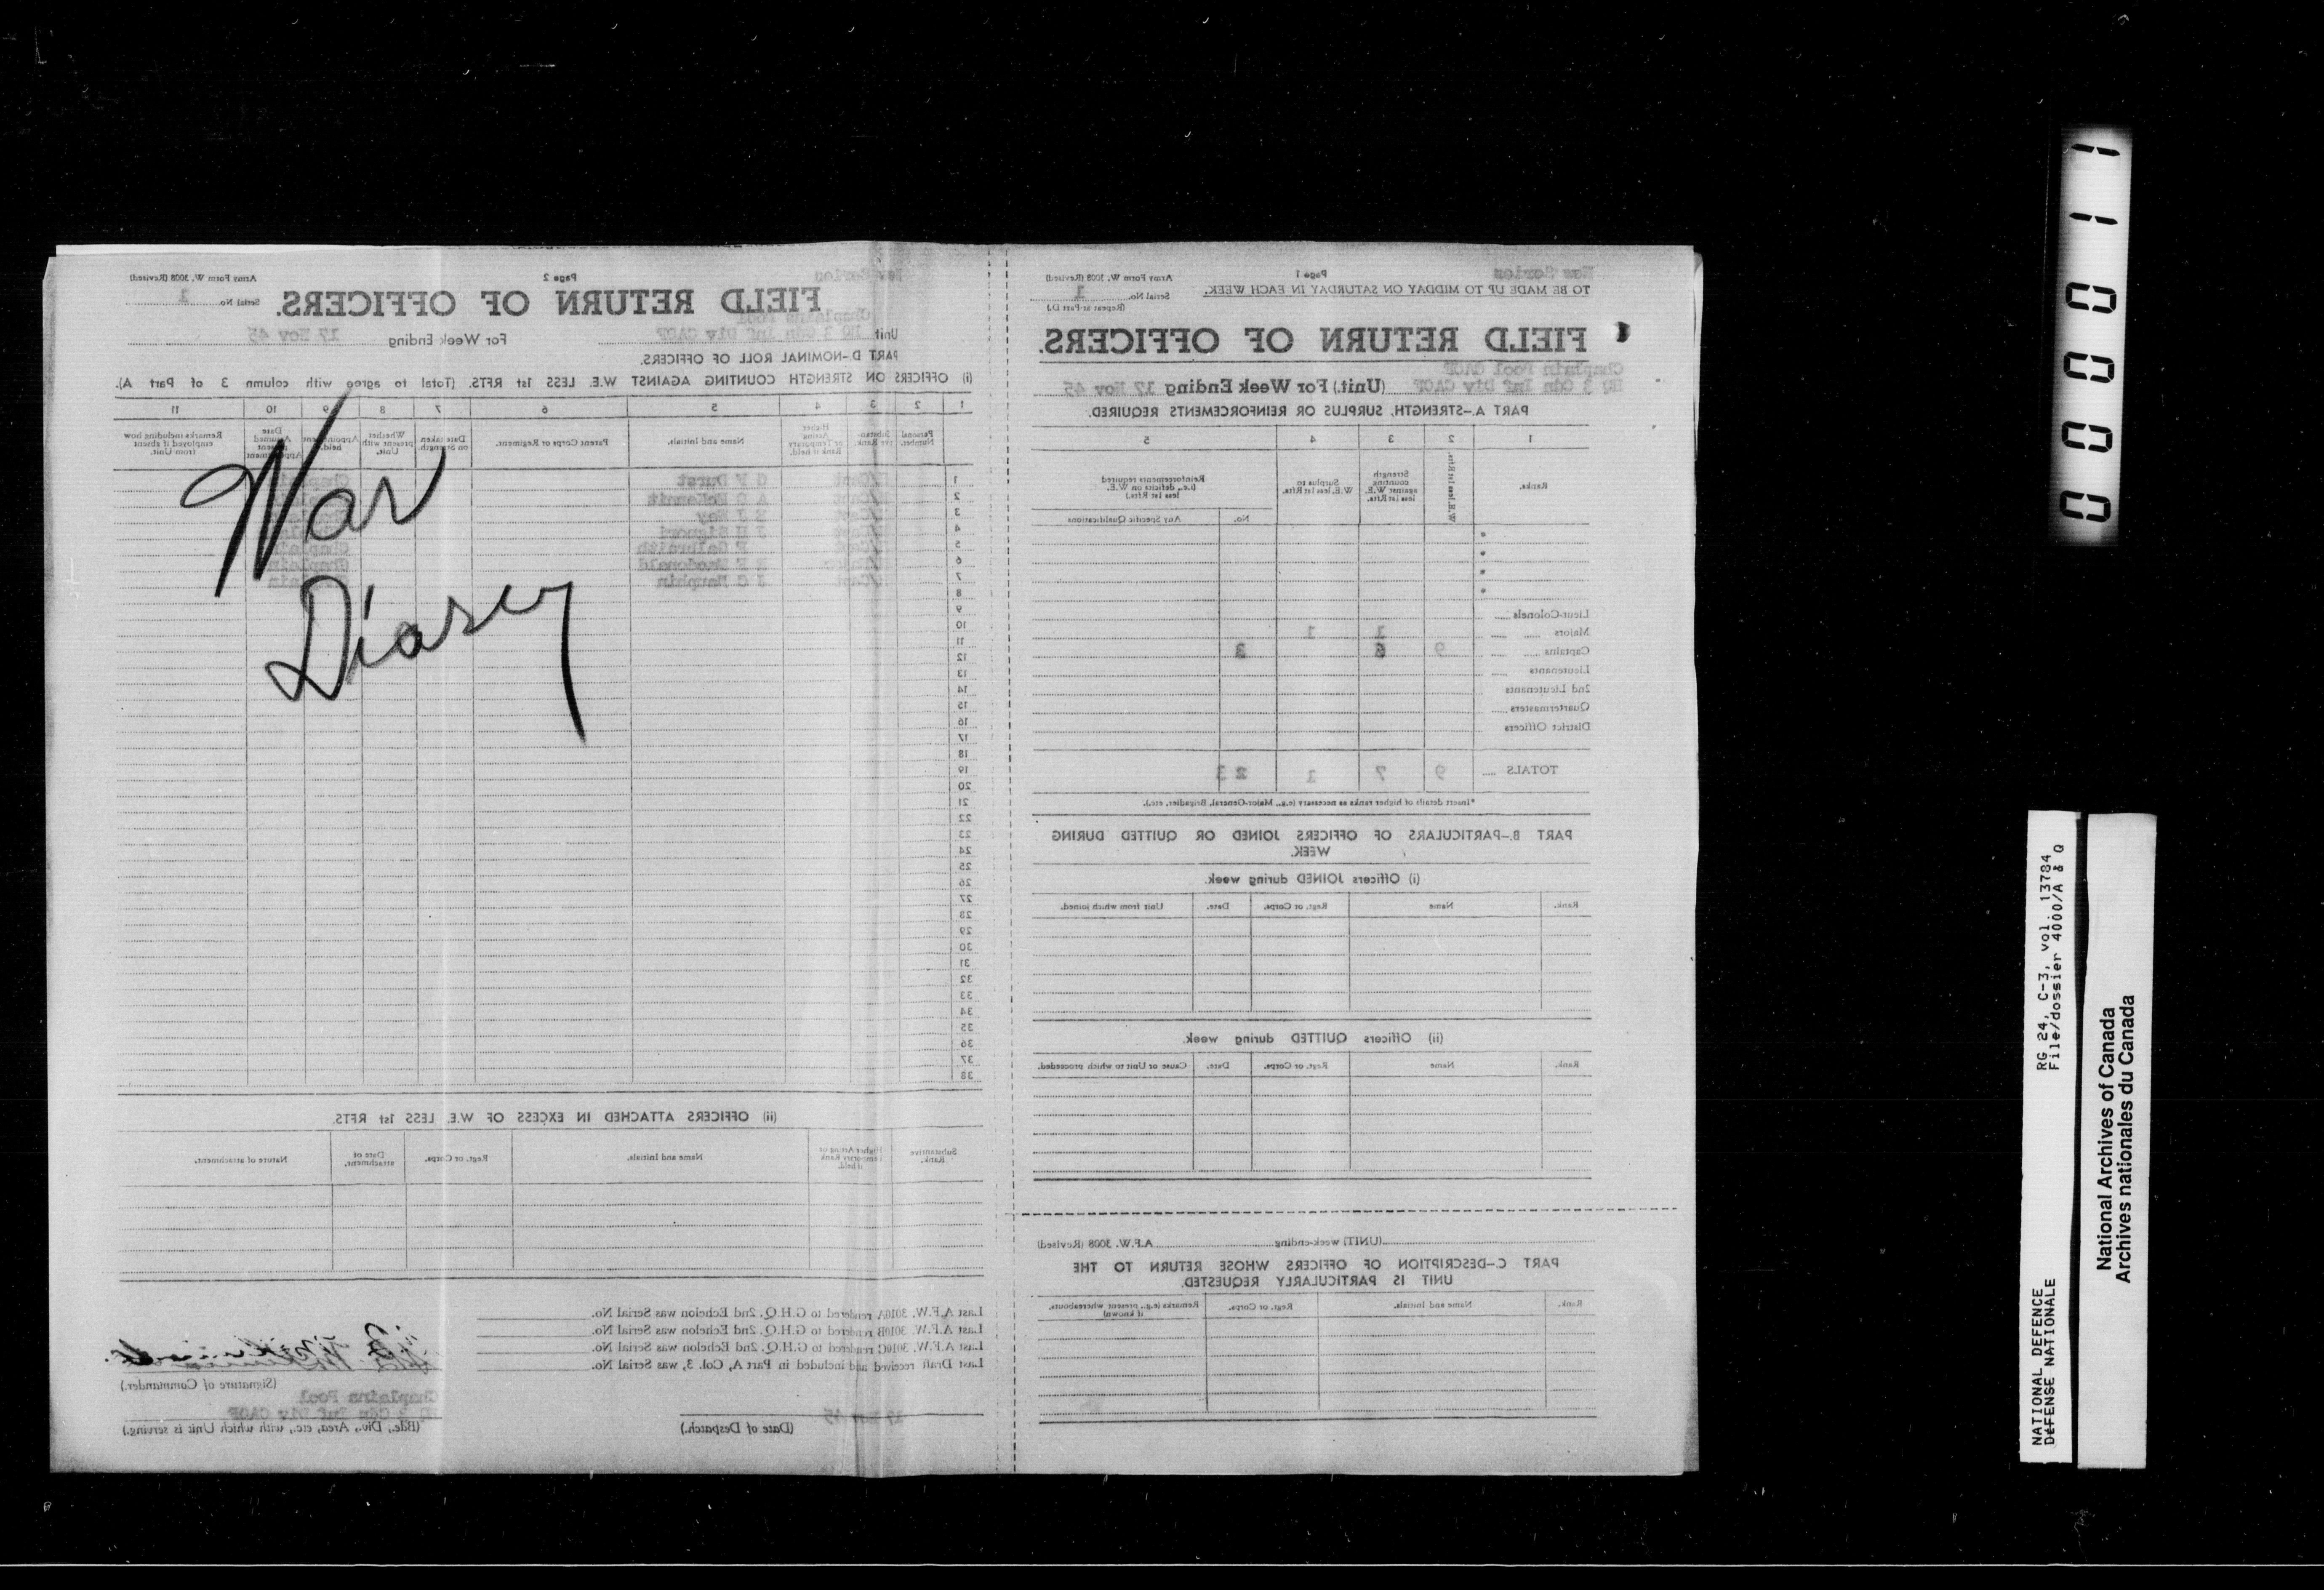 War
Diary
Army Form W. 3008 (Revised)
Page 2
New Series
FIELD RETURN OF OFFICERS.
Serial No. 1
Chaplains Pool
Unit HQ 3 Cdn Inf Div CAOF
For Week Ending 17 Nov 45
PART D.—NOMINAL ROLL OF OFFICERS.
(i) OFFICERS ON STRENGTH COUNTING AGAINST W.E. LESS 1st RFTS. (Total to agree with column 3 of Part A).
1 2 3 4 5 6 7 8 9 10 11
Personal Number.
Substantive Rank.
Higher Acting or Temporary Rank if held.
Name and Initials.
Parent Corps or Regiment.
Date taken on Strength
Whether present with Unit.
Appointment held.
Date Assumed present Appointment
Remarks including how employed if absent from Unit.
1 H/Capt G F Durst Chaplain
2 H/Capt
3
4
5 Galbraith Chaplain
6 Macdonald Chaplain
7
8
9
10
11
12
13
14
15
16
17
18
19
20
21
22
23
24
25
26
27
28
29
30
31
32
33
34
35
36
37
38
(ii) OFFICERS ATTACHED IN EXCESS OF W.E. LESS 1st RFTS.
Substantive Rank.
Higher Acting or Temporary Rank if held.
Name and Initials.
Regt. or Corps.
Date of attachment.
Nature of attachment.
Last A.F.W. 3010A rendered to G.H.Q. 2nd Echelon was Serial No.
Last A.F.W. 3010B rendered to G.H.Q. 2nd Echelon was Serial No.
Last A.F.W. 3010C rendered to G.H.Q. 2nd Echelon was Serial No.
Last Draft received and included in Part A, Col. 3, was Serial No.
(Signature of Commander.)
Chaplains Pool
HQ 3 Cdn Inf Div CAOF
(Date of Despatch.)
(Bde., Div., Area, etc., with which Unit is serving.)
New Series
Page 1
Army Form W. 3008 (Revised)
TO BE MADE UP TO MIDDAY ON SATURDAY IN EACH WEEK.
Serial No. 1
(Repeat at Part D.)
FIELD RETURN OF OFFICERS.
Chaplain Pool CAOF
HQ 3 Cdn Inf Div CAOF (Unit.) For Week Ending 17 Nov 45
PART A.—STRENGTH, SURPLUS OR REINFORCEMENTS REQUIRED.
1 2 3 4 5
Ranks.
W.E. less 1st Rfts.
Strength counting against W.E. less 1st Rfts.
Surplus to W.E. less 1st Rfts.
Reinforcements required (i.e., deficits on W.E. less 1st Rfts.)
No. Any Specific Qualifications
*
*
*
*
Lieut-Colonels
Majors 1 1
Captains 9 6 3
Lieutenants
2nd Lieutenants
Quartermasters
District Officers
TOTALS 9 7 1 2 3
*Insert details of higher ranks as necessary (e.g., Major-General, Brigadier, etc.).
PART B.—PARTICULARS OF OFFICERS JOINED OR QUITTED DURING WEEK.
(i) Officers JOINED during week.
Rank. Name Regt. or Corps. Date. Unit from which joined.
(ii) Officers QUITTED during week.
Rank. Name Regt. or Corps. Date. Cause or Unit to which proceeded.
(UNIT) week-ending A.F.W. 3008 (Revised)
PART C.—DESCRIPTION OF OFFICERS WHOSE RETURN TO THE
UNIT IS PARTICULARLY REQUESTED.
Rank. Name and Initials. Regt. or Corps. Remarks (e.g., present whereabouts, if known)
000011
RG 24, C-3, vol. 13784
File/dossier 4000/A & Q
NATIONAL DEFENCE
DEFENSE NATIONALE
National Archives of Canada
Archives nationales du Canada